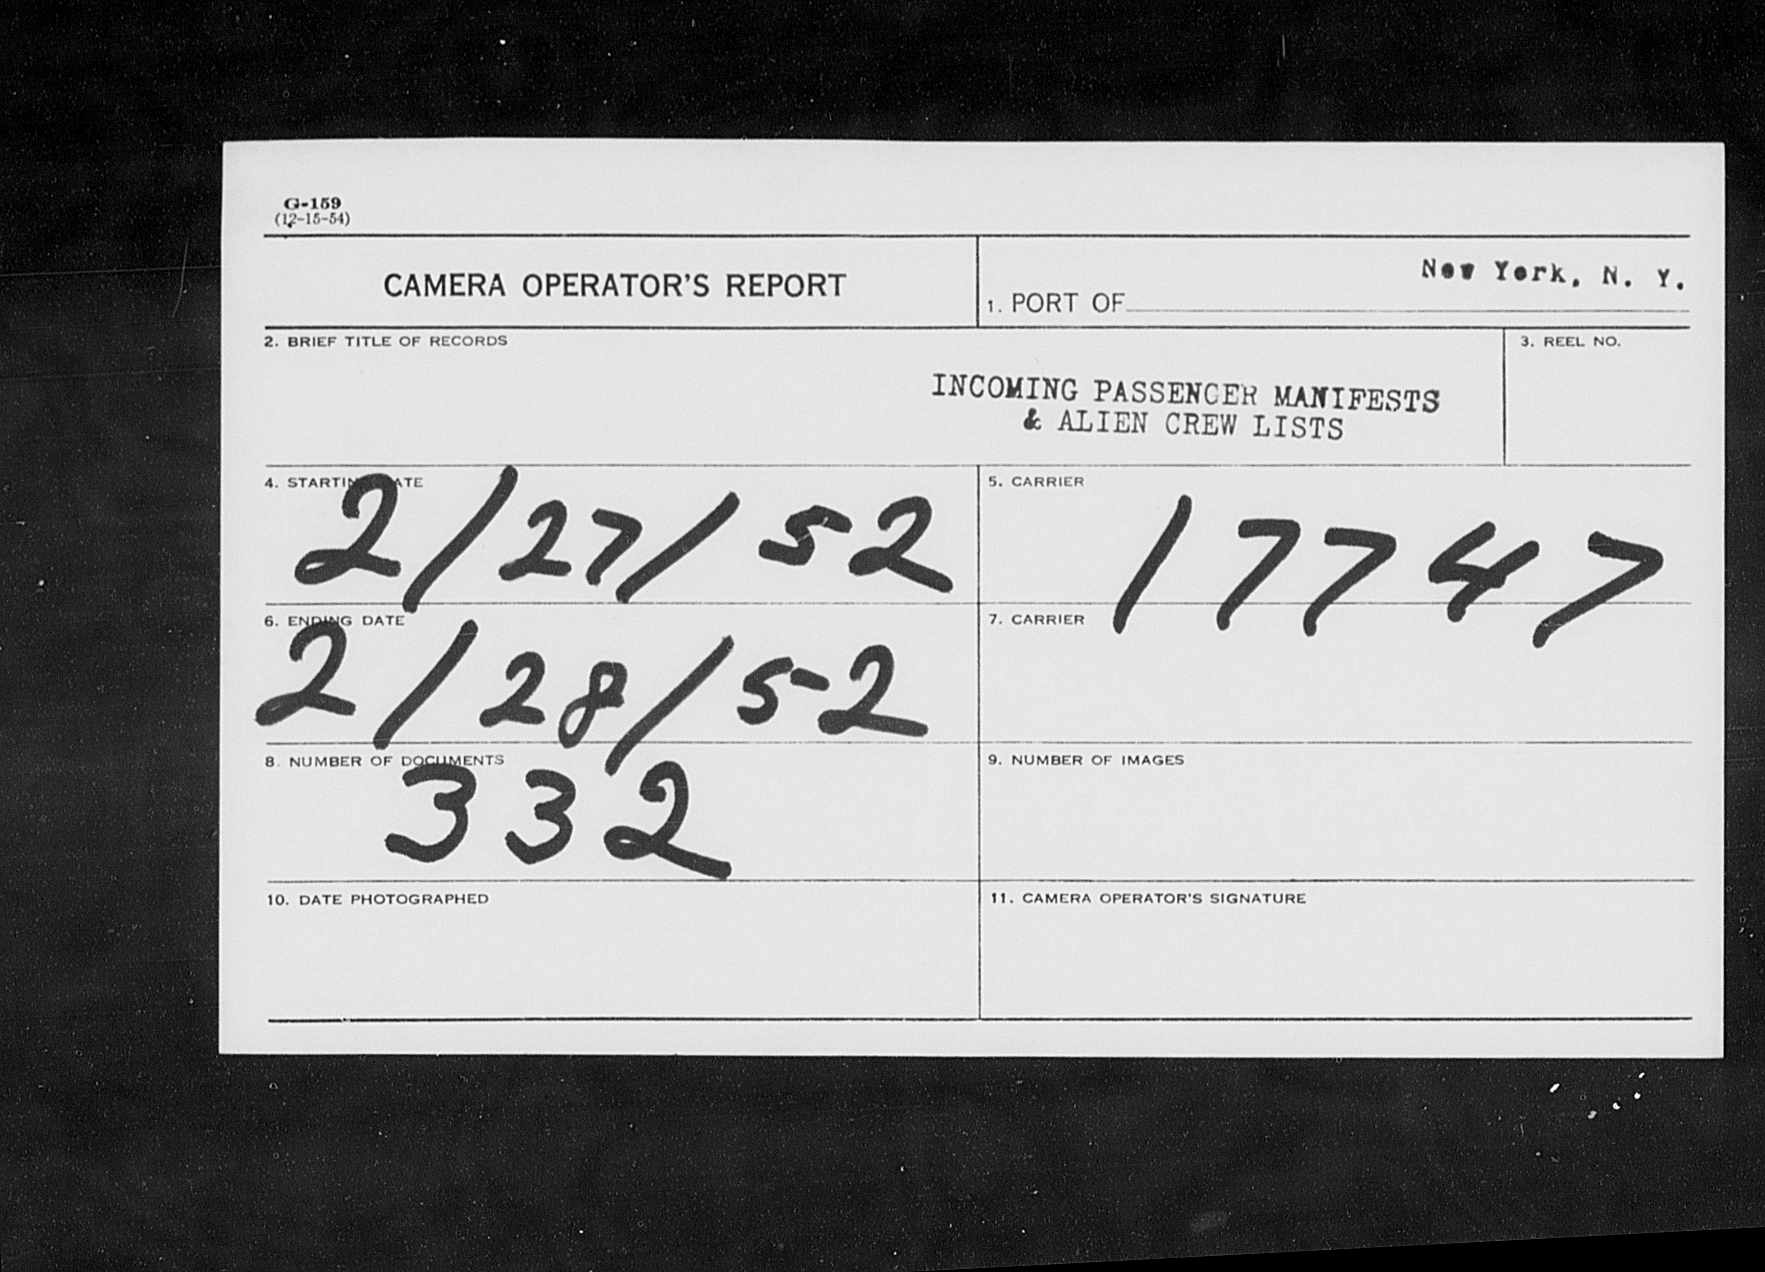 G-159
(12-15-54)
CAMERA OPERATOR'S REPORT
1. PORT OF New York, N. Y.
2. BRIEF TITLE OF RECORDS
INCOMING PASSENGER MANIFESTS
& ALIEN CREW LISTS
3. REEL NO.
4. STARTING DATE
2/27/52
5. CARRIER
17747
6. ENDING DATE
2/28/52
7. CARRIER
8. NUMBER OF DOCUMENTS
332
9. NUMBER OF IMAGES
10. DATE PHOTOGRAPHED
11. CAMERA OPERATOR'S SIGNATURE